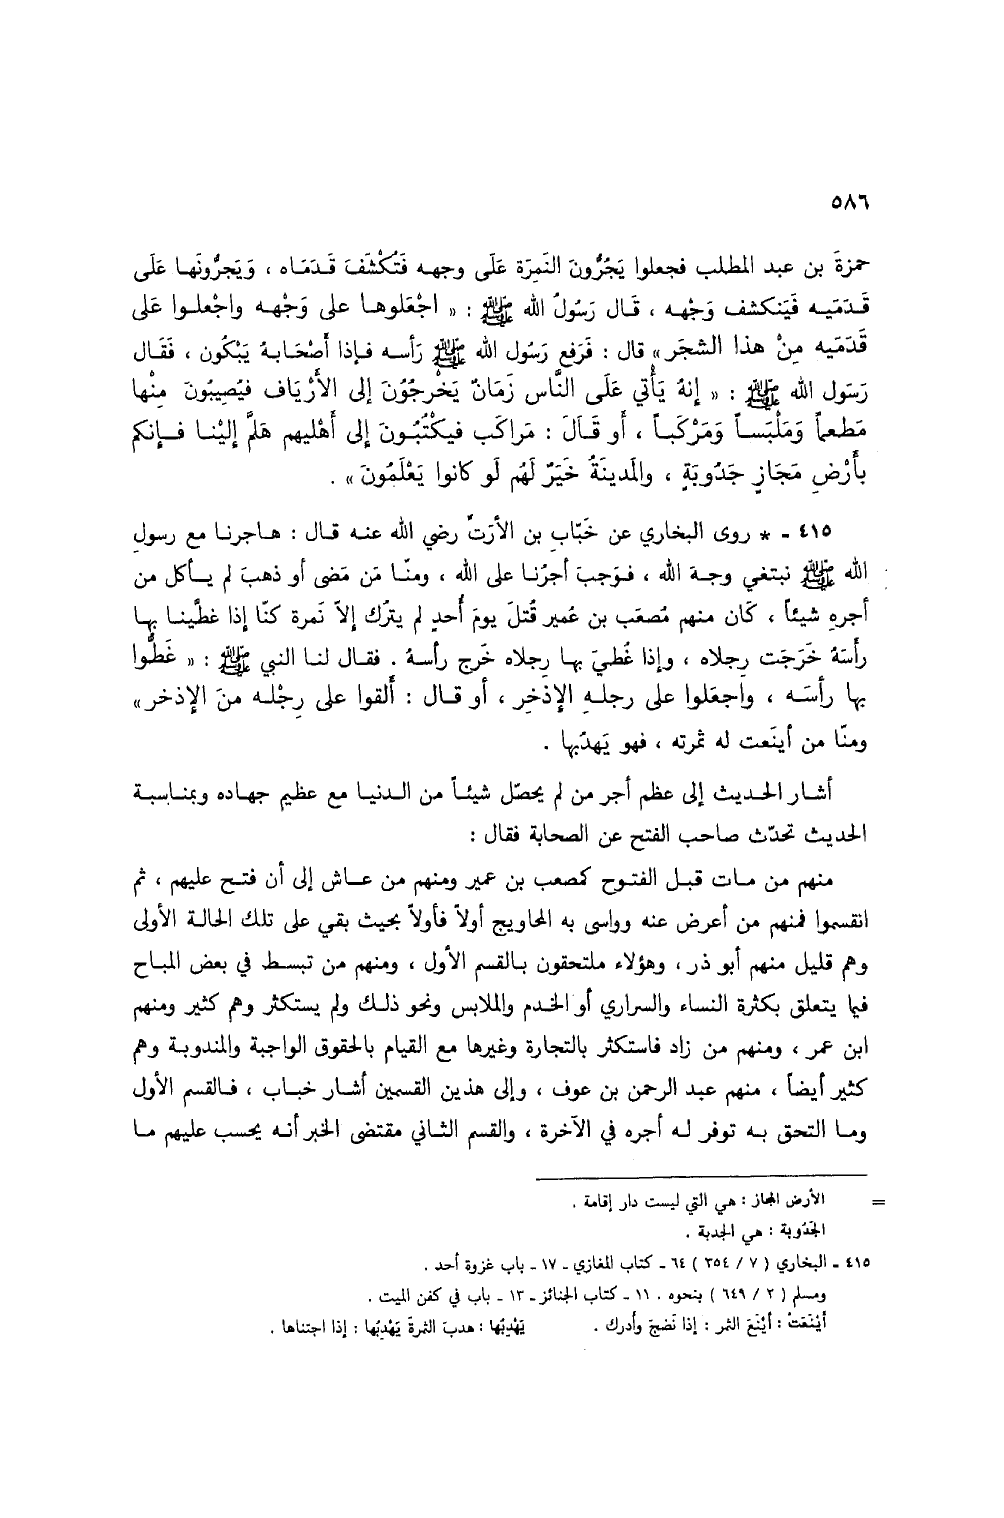 ٥٨٦
حمزةَ بن عبد المطلب فجعلوا يَجُرُّونَ النَمِرَة عَلَى وجهه فَتُكْشَفَ قَدَمَاه ، وَيَجرُّونَها عَلَى
قَدَمَيه فَيَنكشف وَجْهه ، قَال رَسُولُ الله ﷺ : « اجْعَلوها على وَجْهه واجْعلوا عَلى
قَدَمَيه مِنْ هذا الشجَر » قال : فَرَفع رَسُول الله ﷺ رَأسه فإذا أَصْحَابهُ يَبْكُون ، فَقَال
رَسَول الله ﷺ : « إنهُ يَأتي عَلَى النَّاس زَمَانٌ يَخْرجُوُنَ إلى الأَرْيَاف فيُصِيبُونَ مِنْها
مَطعماً وَمَلْبَساً وَمَرْكَباً ، أو قَالَ : مَراكَب فيكْتُبُونَ إلى أَهْليهم هَلمَّ إليْنا فإنكم
بأَرْضِ مَجَازٍ جَدُوبَةٍ ، والمَدينَةُ خَيَرٌ لَهُم لَو كانوا يَعْلَمُونَ » .
٤١٥ - * روى البخاري عن خَبّاب بن الأرَتّ رضي الله عنه قال : هاجرنا مع رسول
الله ﷺ نبتغي وجهَ الله ، فوَجبَ أجرُنا على الله ، ومنّا مَن مَضى أو ذهبَ لم يأكل من
أجرهِ شيئاً ، كَان منهم مُصعَب بن عُمير قُتلَ يومَ أُحدٍ لم يترُك إلاّ نَمرة كنّا إذا غطَّينا بها
رأسَهُ خَرَجَت رِجلاه ، وإذا غُطيَ بها رِجلاه خَرج رأسهُ . فقال لنا النبي ﷺ : « غَطُّوا
بها رأسَه ، واجعَلوا على رجلهِ الإذخِر ، أو قال : أَلقوا على رِجْله منَ الإذخر »
ومنّا من أينَعت له ثمرته ، فهو يَهدّبها .
أشار الحديث إلى عظم أجر من لم يحصّل شيئاً من الدنيا مع عظيم جهاده وبمناسبة
الحديث تحدّث صاحب الفتح عن الصحابة فقال :
منهم من مات قبل الفتوح كمصعب بن عمير ومنهم من عاش إلى أن فتح عليهم ، ثم
انقسموا فمنهم من أعرض عنه وواسى به المحاويج أولاً فأولاً بحيث بقي على تلك الحالة الأولى
وهم قليل منهم أبو ذر ، وهؤلاء ملتحقون بالقسم الأول ، ومنهم من تبسط في بعض المباح
فيما يتعلق بكثرة النساء والسراري أو الخدم والملابس ونحو ذلك ولم يستكثر وهم كثير ومنهم
ابن عمر ، ومنهم من زاد فاستكثر بالتجارة وغيرها مع القيام بالحقوق الواجبة والمندوبة وهم
كثير أيضاً ، منهم عبد الرحمن بن عوف ، وإلى هذين القسمين أشار خباب ، فالقسم الأول
وما التحق به توفر له أجره في الآخرة ، والقسم الثاني مقتضى الخبر أنه يحسب عليهم ما
= الأرض المجاز : هي التي ليست دار إقامة .
الجَدُوبة : هي الجدبة .
٤١٥ - البخاري ( ٧ / ٣٥٤ ) ٦٤ - كتاب المغازي - ١٧ - باب غزوة أحد .
ومسلم ( ٢ / ٦٤٩ ) بنحوه . ١١ - كتاب الجنائز - ١٣ - باب في كفن الميت .
أَيْنَعَتْ : أيْنَعَ الثمر : إذا نَضجَ وأدرك . يَهْدِبُها : هدبَ الثمرةَ يَهْدِبُها : إذا اجتناها .